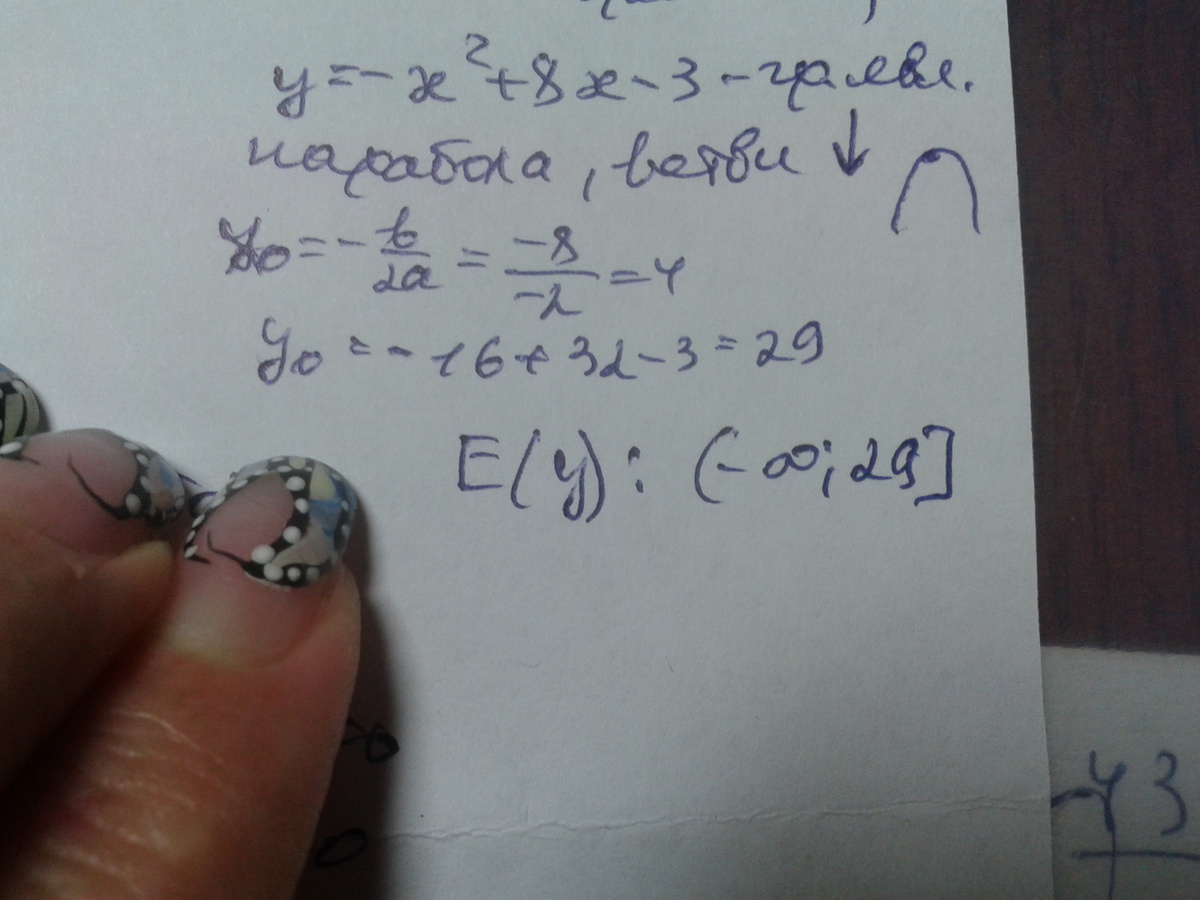 y = -x² + 8x - 3 - гр. явл.
парабола, ветви ↓
x₀ = -b/2a = -8/-2 = 4
y₀ = -16 + 32 - 3 = 29
E(y): (-∞; 29]
43